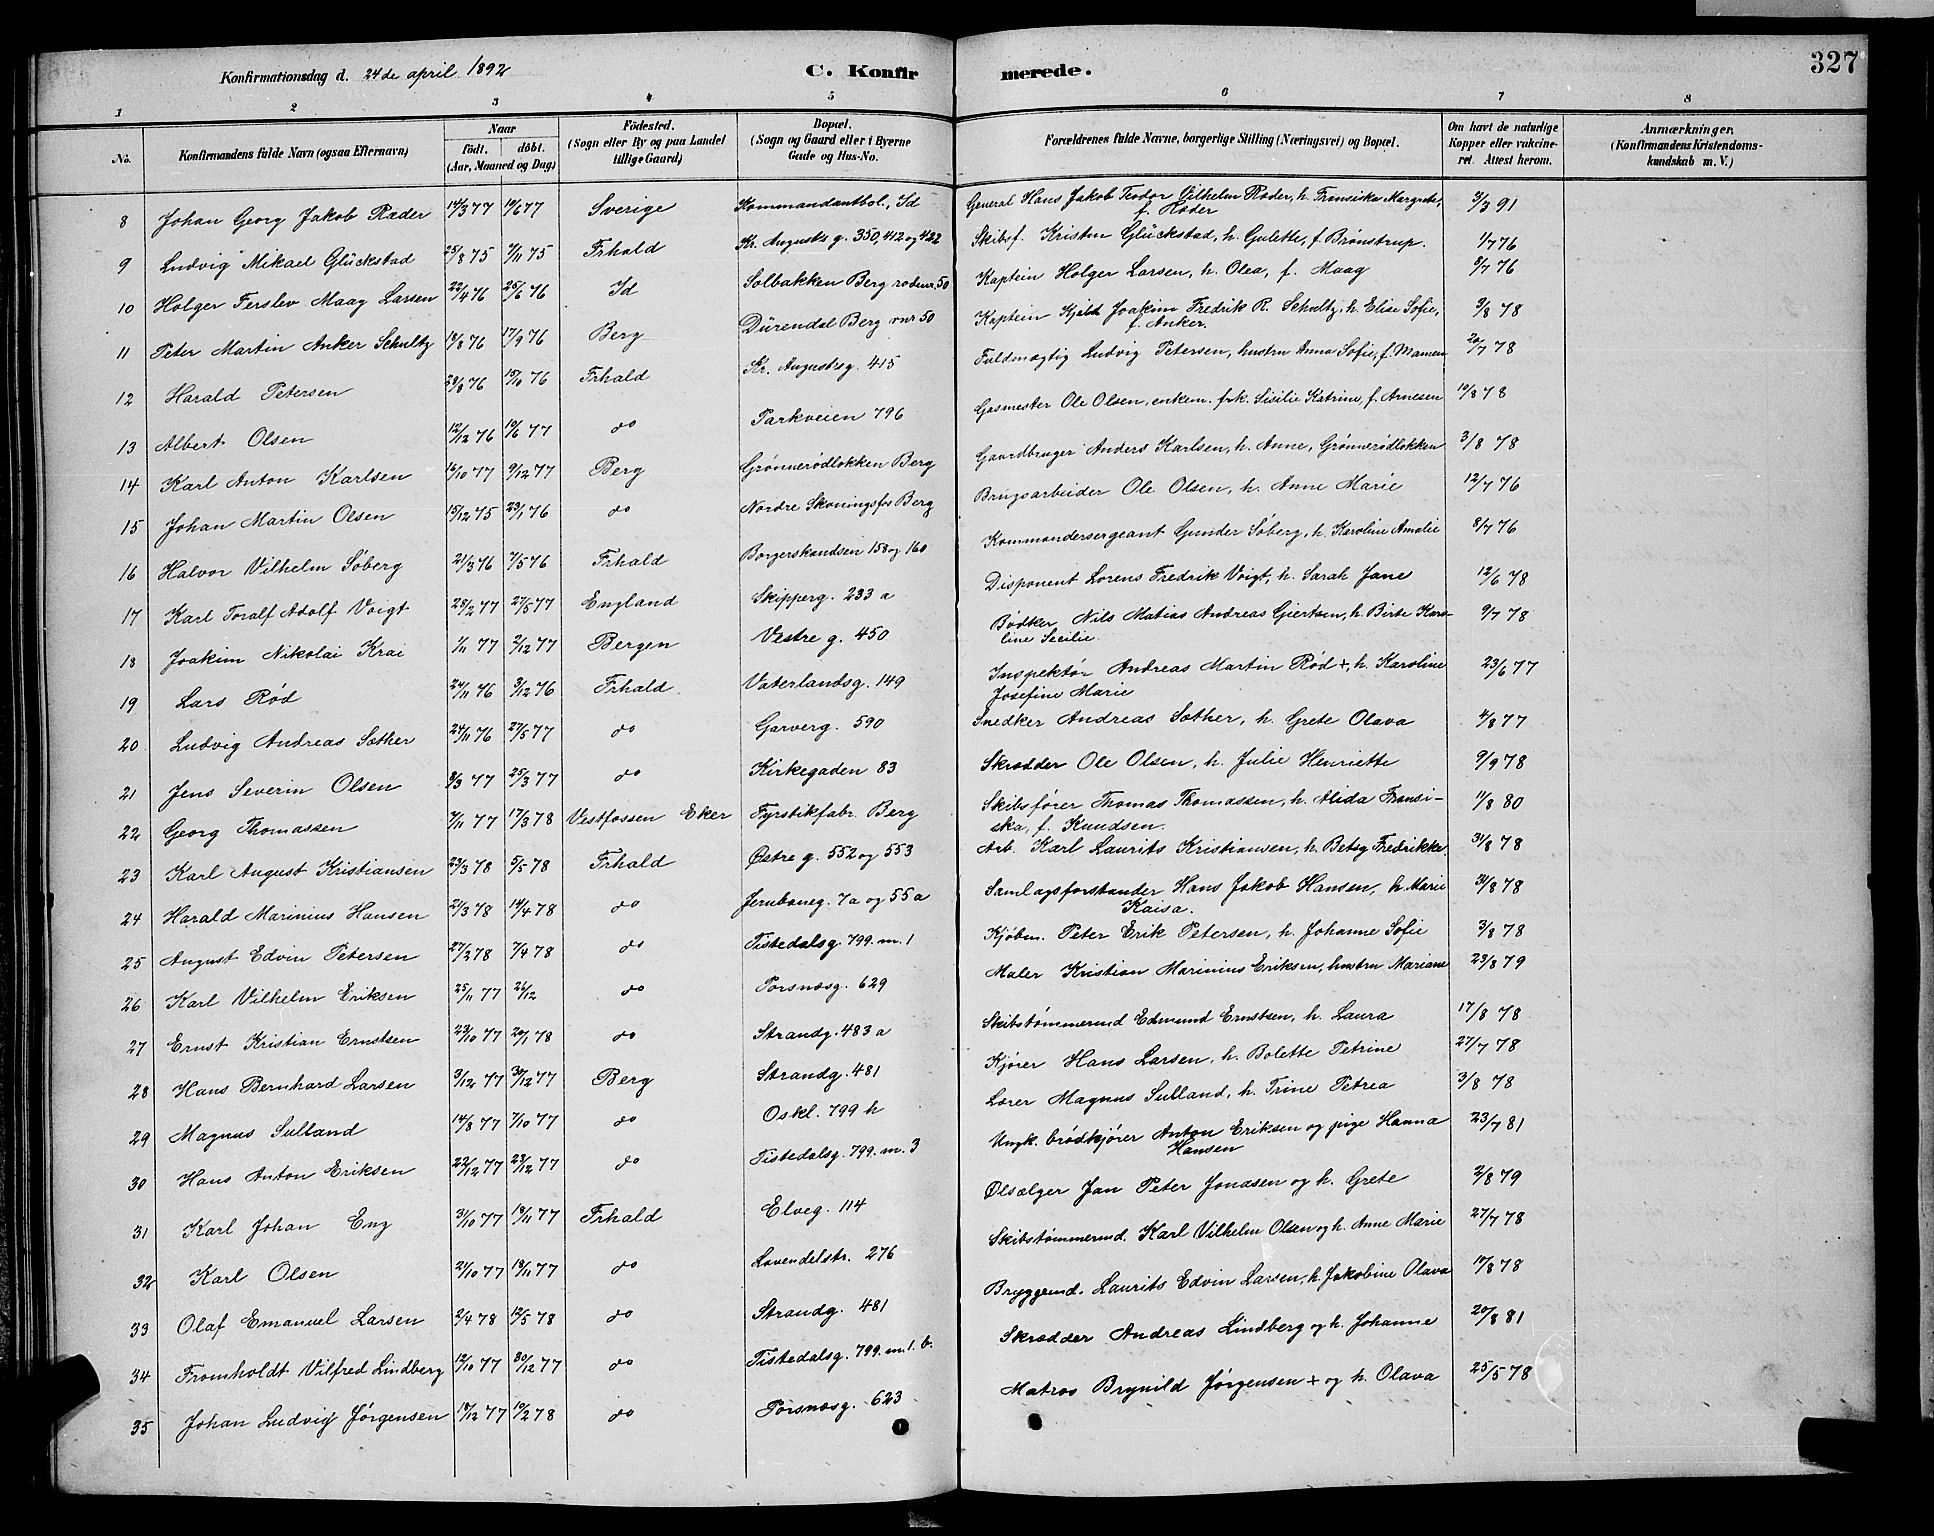 Konfirmationsdag d. 24de april 1892 C. Konfirmerede. 327
1 2 3 4 5 6 7 8
No. Konfirmandens fulde Navn (ogsaa Efternavn) Naar födt. döbt. (Aar, Maaned og Dag) Födested. (Sogn eller By og paa Landet tillige Gaard) Bopæl. (Sogn og Gaard eller i Byerne Gade og Hus-No. Forældrenes fulde Navne, borgerlige Stilling (Næringsvei) og Bopæl. Om havt de naturlige Kopper eller vakcineret. Attest herom. Anmærkninger. (Konfirmandens Kristendomskundskab m. V.)
8 Johan Georg Jakob Ræder 14/3 77 10/6 77 Sverige Kommandantbol., Id General Hans Jakob Teodor Vilhelm Ræder, h. Fransiska Margrete, f. Ræder 3/3 91
9 Ludvig Mikael Glückstad 25/8 75 7/11 75 Frhald Kr. Augusts g. 350, 412 og 422 Skibsf. Kristen Glückstad, h. Gulette, f. Brønstrup. 1/7 76
10 Holger Ferslev Maag Larsen 22/4 76 25/6 76 Id Solbakken Berg rodenr. 50 Kaptein Holger Larsen, h. Olea, f. Maag 8/7 76
11 Peter Martin Anker Schultz 19/8 76 17/9 76 Berg Dürendal Berg rnr 50 Kaptein Kjeld Joakim Fredrik R. Schultz, h. Elise Sofie, f. Anker. 9/8 78
12 Harald Petersen 29/8 76 15/10 76 Frhald Kr. Augustsg. 415 Fuldmægtig Ludvig Petersen, hustru Anna Sofie, f. Mamen 20/7 78
13 Albert Olsen 12/12 76 10/6 77 do Parkveien 796 Gasmester Ole Olsen, enkem. frk. Sicilie Katrine, f. Arnesen 10/8 78
14 Karl Anton Karlsen 16/10 77 9/12 77 Berg Grønnerødløkken Berg Gaardbruger Anders Karlsen, h. Anne, Grønnerødløkken 3/8 78
15 Johan Martin Olsen 15/12 75 23/1 76 do Nordre Skoningsfos Berg Brugsarbeider Ole Olsen, h. Anne Marie 12/7 76
16 Halvor Vilhelm Söberg 21/3 76 7/5 76 Frhald Borgerskandsen 158 og 160 Kommandersergeant Gunder Söberg, h. Karoline Amalie 8/7 76
17 Karl Toralf Adolf Voigt 28/2 77 27/5 77 England Skipperg. 233 a Disponent Lorens Fredrik Voigt, h. Sarah Jane 12/6 78
18 Joakim Nikolai Krai 1/11 77 2/12 77 Bergen Vestre g. 450 Bødker Nils Matias Andreas Giertsen, h. Birte Karoline Secilie. 9/7 78
19 Lars Rød 24/11 76 3/12 76 Frhald Vaterlandsg. 149 Inspektør Andreas Martin Rød +, h. Karoline Josefine Marie 23/6 77
20 Ludvig Andreas Sæther 24/11 76 27/5 77 do Garverg. 590 Snedker Andreas Sæther, h. Grete Olava 4/8 77
21 Jens Severin Olsen 8/3 77 25/3 77 do Kirkegaden 83 Skrædder Ole Olsen, h. Julie Henriette 9/9 78
22 Georg Thomassen 7/11 77 17/3 78 Vestfossen Eker Fyrstikfabr. Berg Skibsfører Thomas Thomassen, h. Alida Fransiska, f. Knudsen. 11/8 80
23 Karl August Kristiansen 23/3 78 5/5 78 Frhald Østre g. 552 og 553 Arb. Karl Laurits Kristiansen, h. Betsy Fredrikke. 31/8 78
24 Harald Marinius Hansen 21/3 78 14/4 78 do Jernbaneg. 7a og 55a Samlagsforstander Hans Jakob Hansen, h. Marie Kaisa. 31/8 78
25 August Edvin Petersen 27/2 78 7/4 78 do Tistedalsg. 799. m. 1 Kjøbm. Peter Erik Petersen, h. Johanne Sofie 3/8 78
26 Karl Vilhelm Eriksen 25/11 77 26/12 do Torsnæsg. 629 Maler Kristian Marinius Eriksen, hustru Mariane 23/8 79
27 Ernst Kristian Ernstsen 23/10 77 20/1 78 do Strandg. 483 a Skibstømmermd Edmund Ernstsen, h. Laura 17/8 78
28 Hans Bernhard Larsen 3/12 77 30/12 77 Berg Strandg. 481 Kjører Hans Larsen, h. Bolette Petrine 27/7 78
29 Magnus Sulland 14/8 77 7/10 77 do Oskl. 799 h Lærer Magnus Sulland, h. Trine Petrea 3/8 78
30 Hans Anton Eriksen 22/12 77 23/12 77 do Tistedalsg. 799. m. 3 Ungk. brødkjører Anton Eriksen og pige Hanna Hansen 23/7 81
31 Karl Johan Eng 3/10 77 18/11 77 Frhald Elveg. 114 Ølsælger Jan Peter Jonasen og h. Grete 2/8 79
32 Karl Olsen 21/10 77 18/11 77 do Lavendelstr. 276 Skibstømmermd. Karl Vilhelm Olsen og h. Anne Marie 27/7 78
33 Olaf Emanuel Larsen 2/4 78 12/5 78 do Strandg. 481 Bryggemd. Laurits Edvin Larsen, h. Jakobine Olava 10/8 78
34 Fromholdt Vilfred Lindberg 12/10 77 30/12 77 do Tistedalsg. 799. m. 1. b. Skrædder Andreas Lindberg og h. Johanne 20/8 81
35 Johan Ludvig Jørgensen 18/12 77 10/2 78 do Torsnæsg. 623 Matros Brynild Jørgensen + og h. Olava 25/5 78